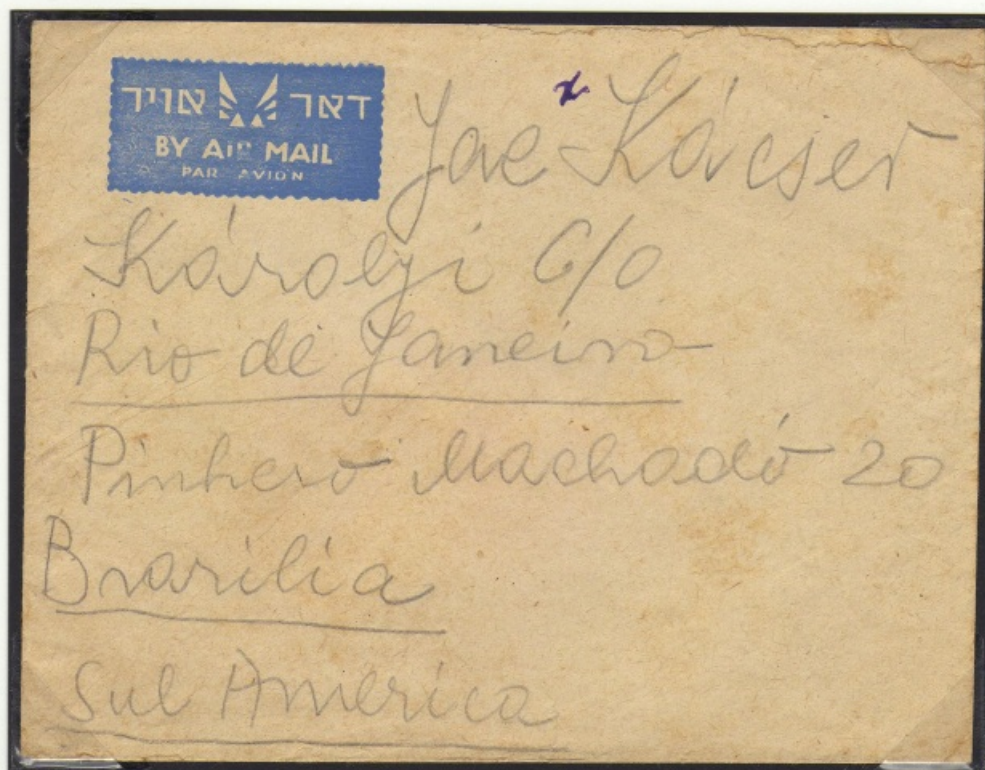 דאר אויר
BY AIR MAIL
PAR AVION
Jac Kácser
Károlyi C/o
Rio de Janeiro
Pinhero Machadó 20
Brazilia
Sul America